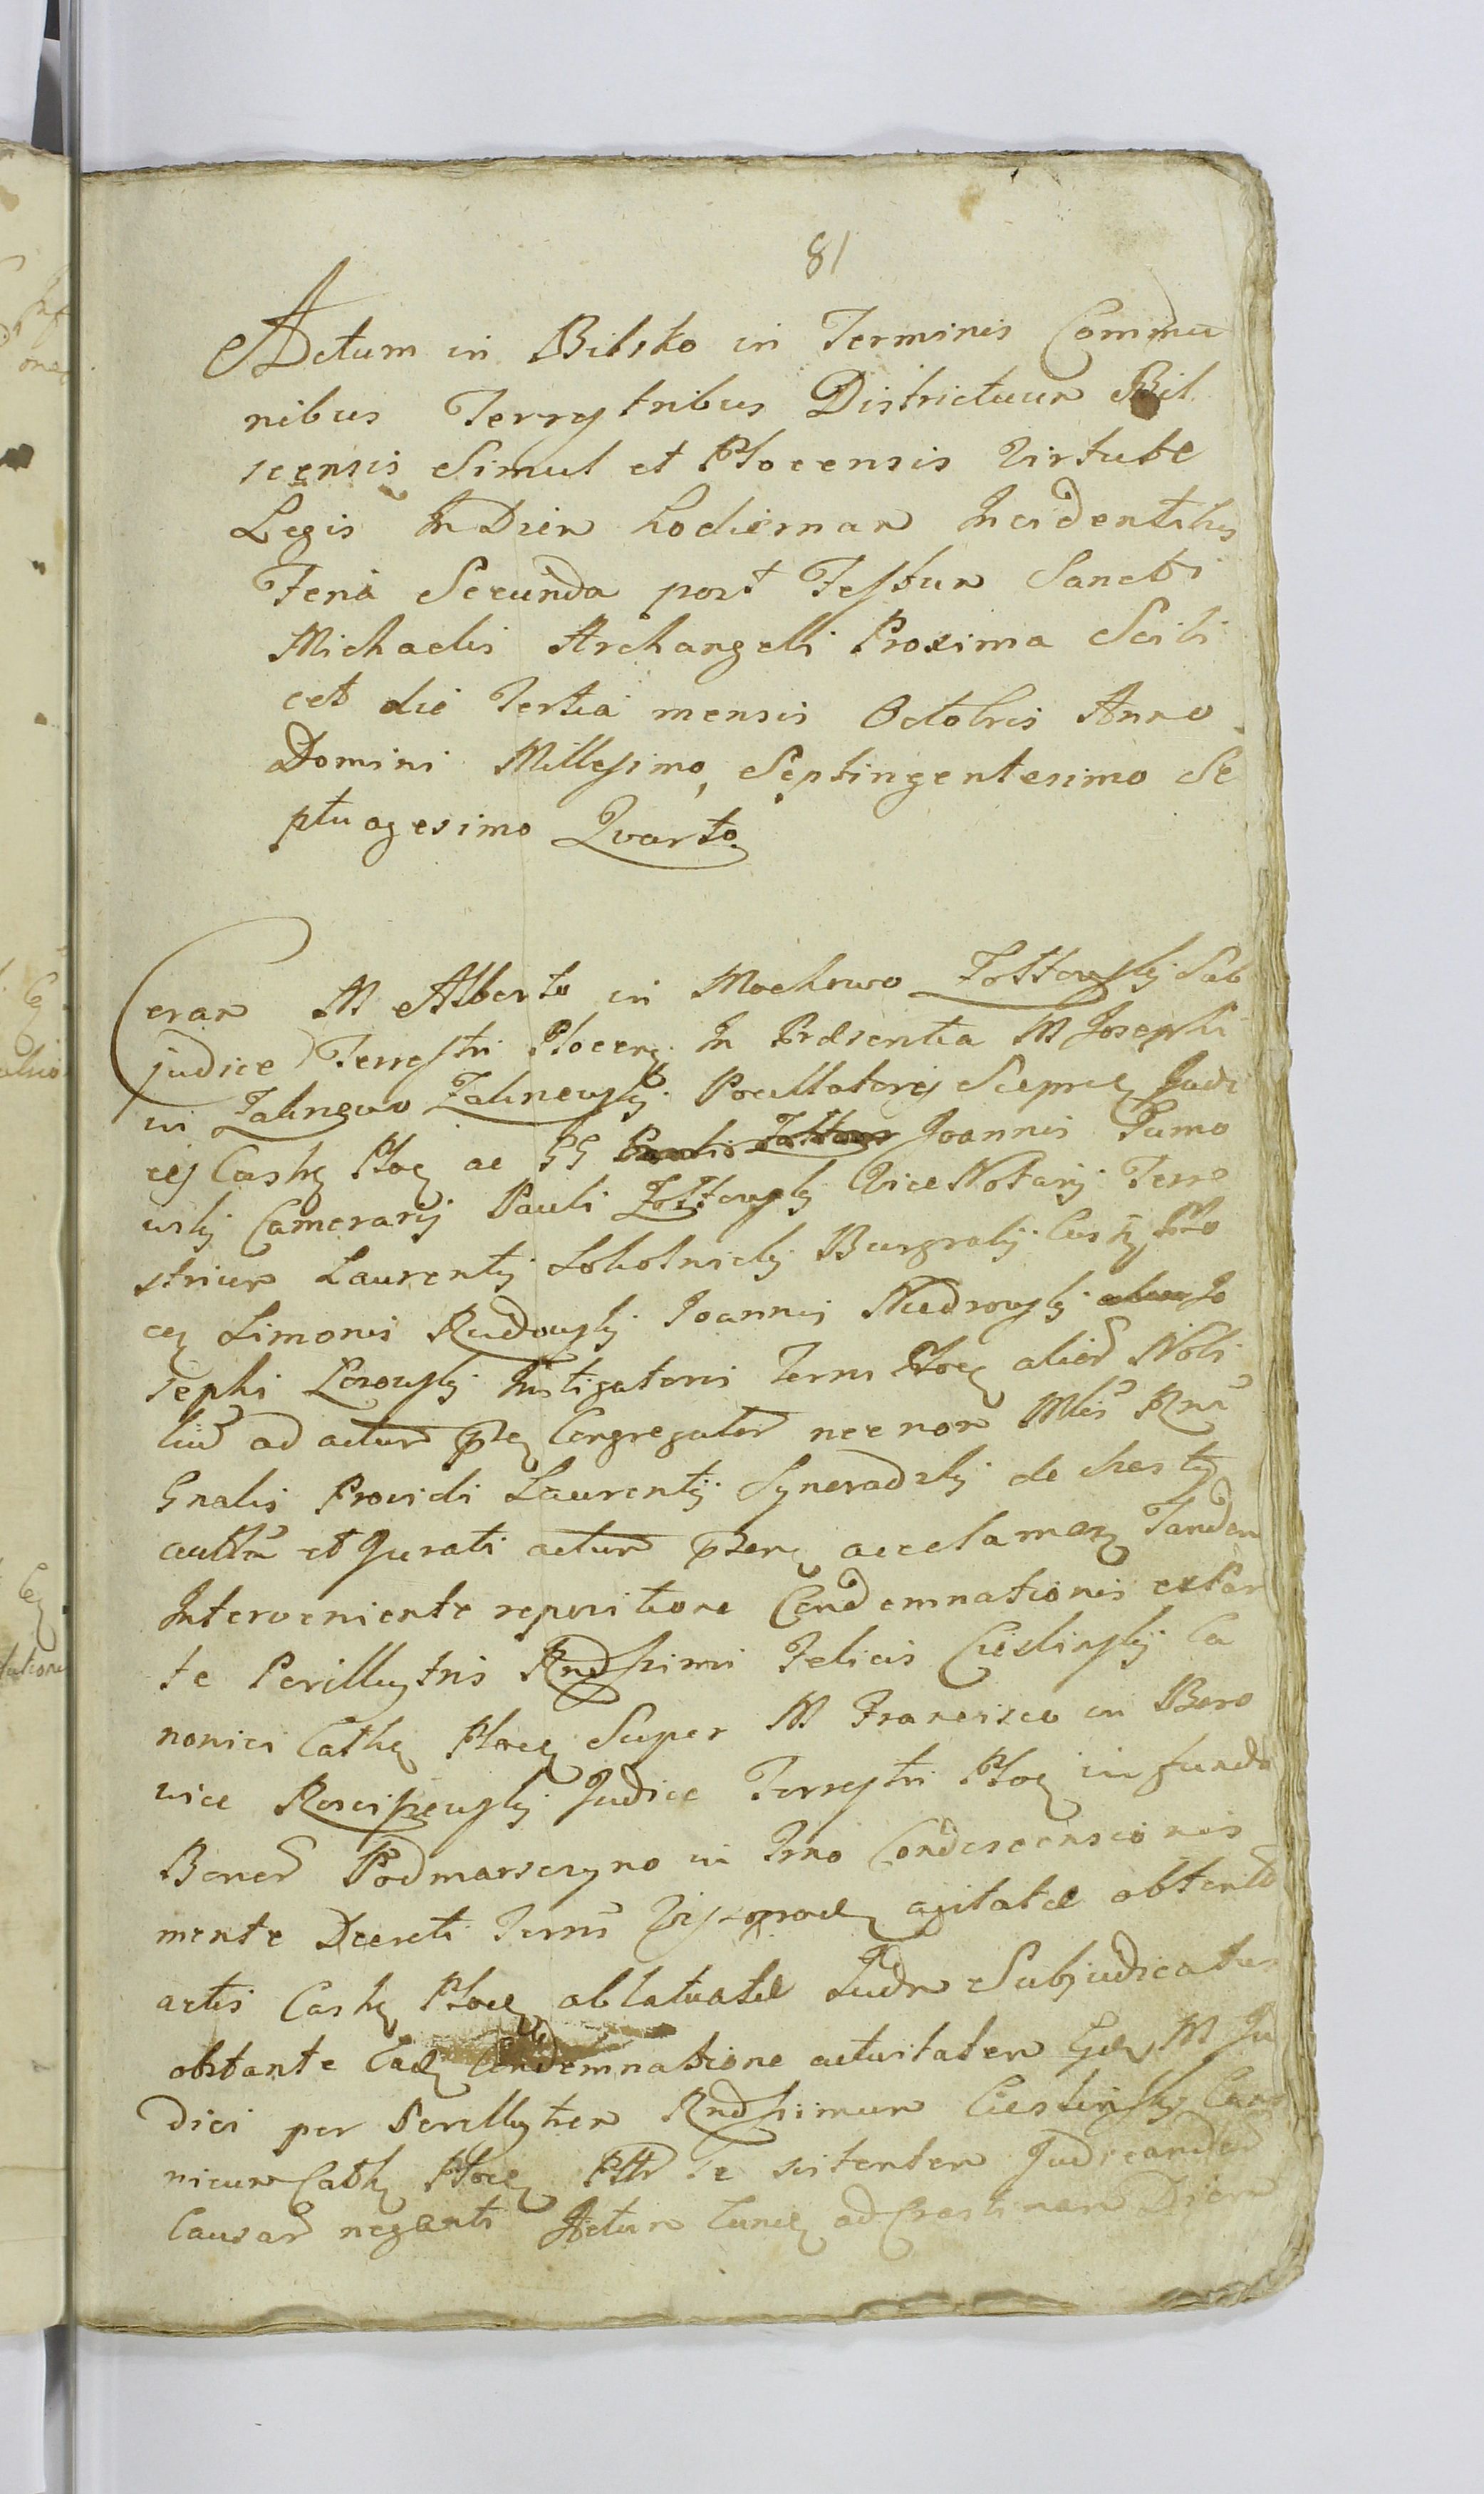 81
Actum in Bilsko in Terminis Commu
nibus Terrestribus Districtuum Bil
scensis Simul et Plocensis Virtute
Legis In Diem hodiernam Incidentibus
Feria Secunda post Festum Sancti
Michaelis Archangelli Proxima Scili
cet die Tertia mensis Octobris Anno
Domini Millesimo, Septingentesimo Se
ptuagesimo Qvarto
Coram M Alberto in Mochowo Zołtowskj Sub
judice Terrestri Plocen In Præsentia M Josephi
in Zalinowo Zalinewskj Pocillatorij Judi
cij Castr Ploc ac GG Joannis Pumo
wskj Camerarij Pauli Zołtowskj Vice Notarij Terre
strium Laurentij Sokolnickj Burgrabij Castr Plo
cen Simonis Rudowskj Joannis Niedrowskj Jo
sephi Instigatoris Terris Ploc aliorū Nobi
liū ad actum Congregator nec non Mlis Rni
Gnalis Providi Laurentij Syneradzkj de
authū et Jurati actum acclaman Tandem
Interveniente repositione Condemnationis ex Par
te Perillustris Rndssimi Felicis Cieslinskj Ca
nonici Cathe Ploce Super M Francisco in Boro
wice Rosciszewskj Judice Terrestri Ploc in fundo
Bonor Podmarszczyno in Trno Condescensionis
mente Decreti Terris agitatæ obtent
actis Castr Ploce oblatuatæ Judm Subjudicatus
obstante Condemnatione activitatem M Ju
dici per Perillustrem Rndssimum Cieslinskj Cano
nicum Cathe Ploce Judicandar
Causar neganti Actum ad Crastinam Diem